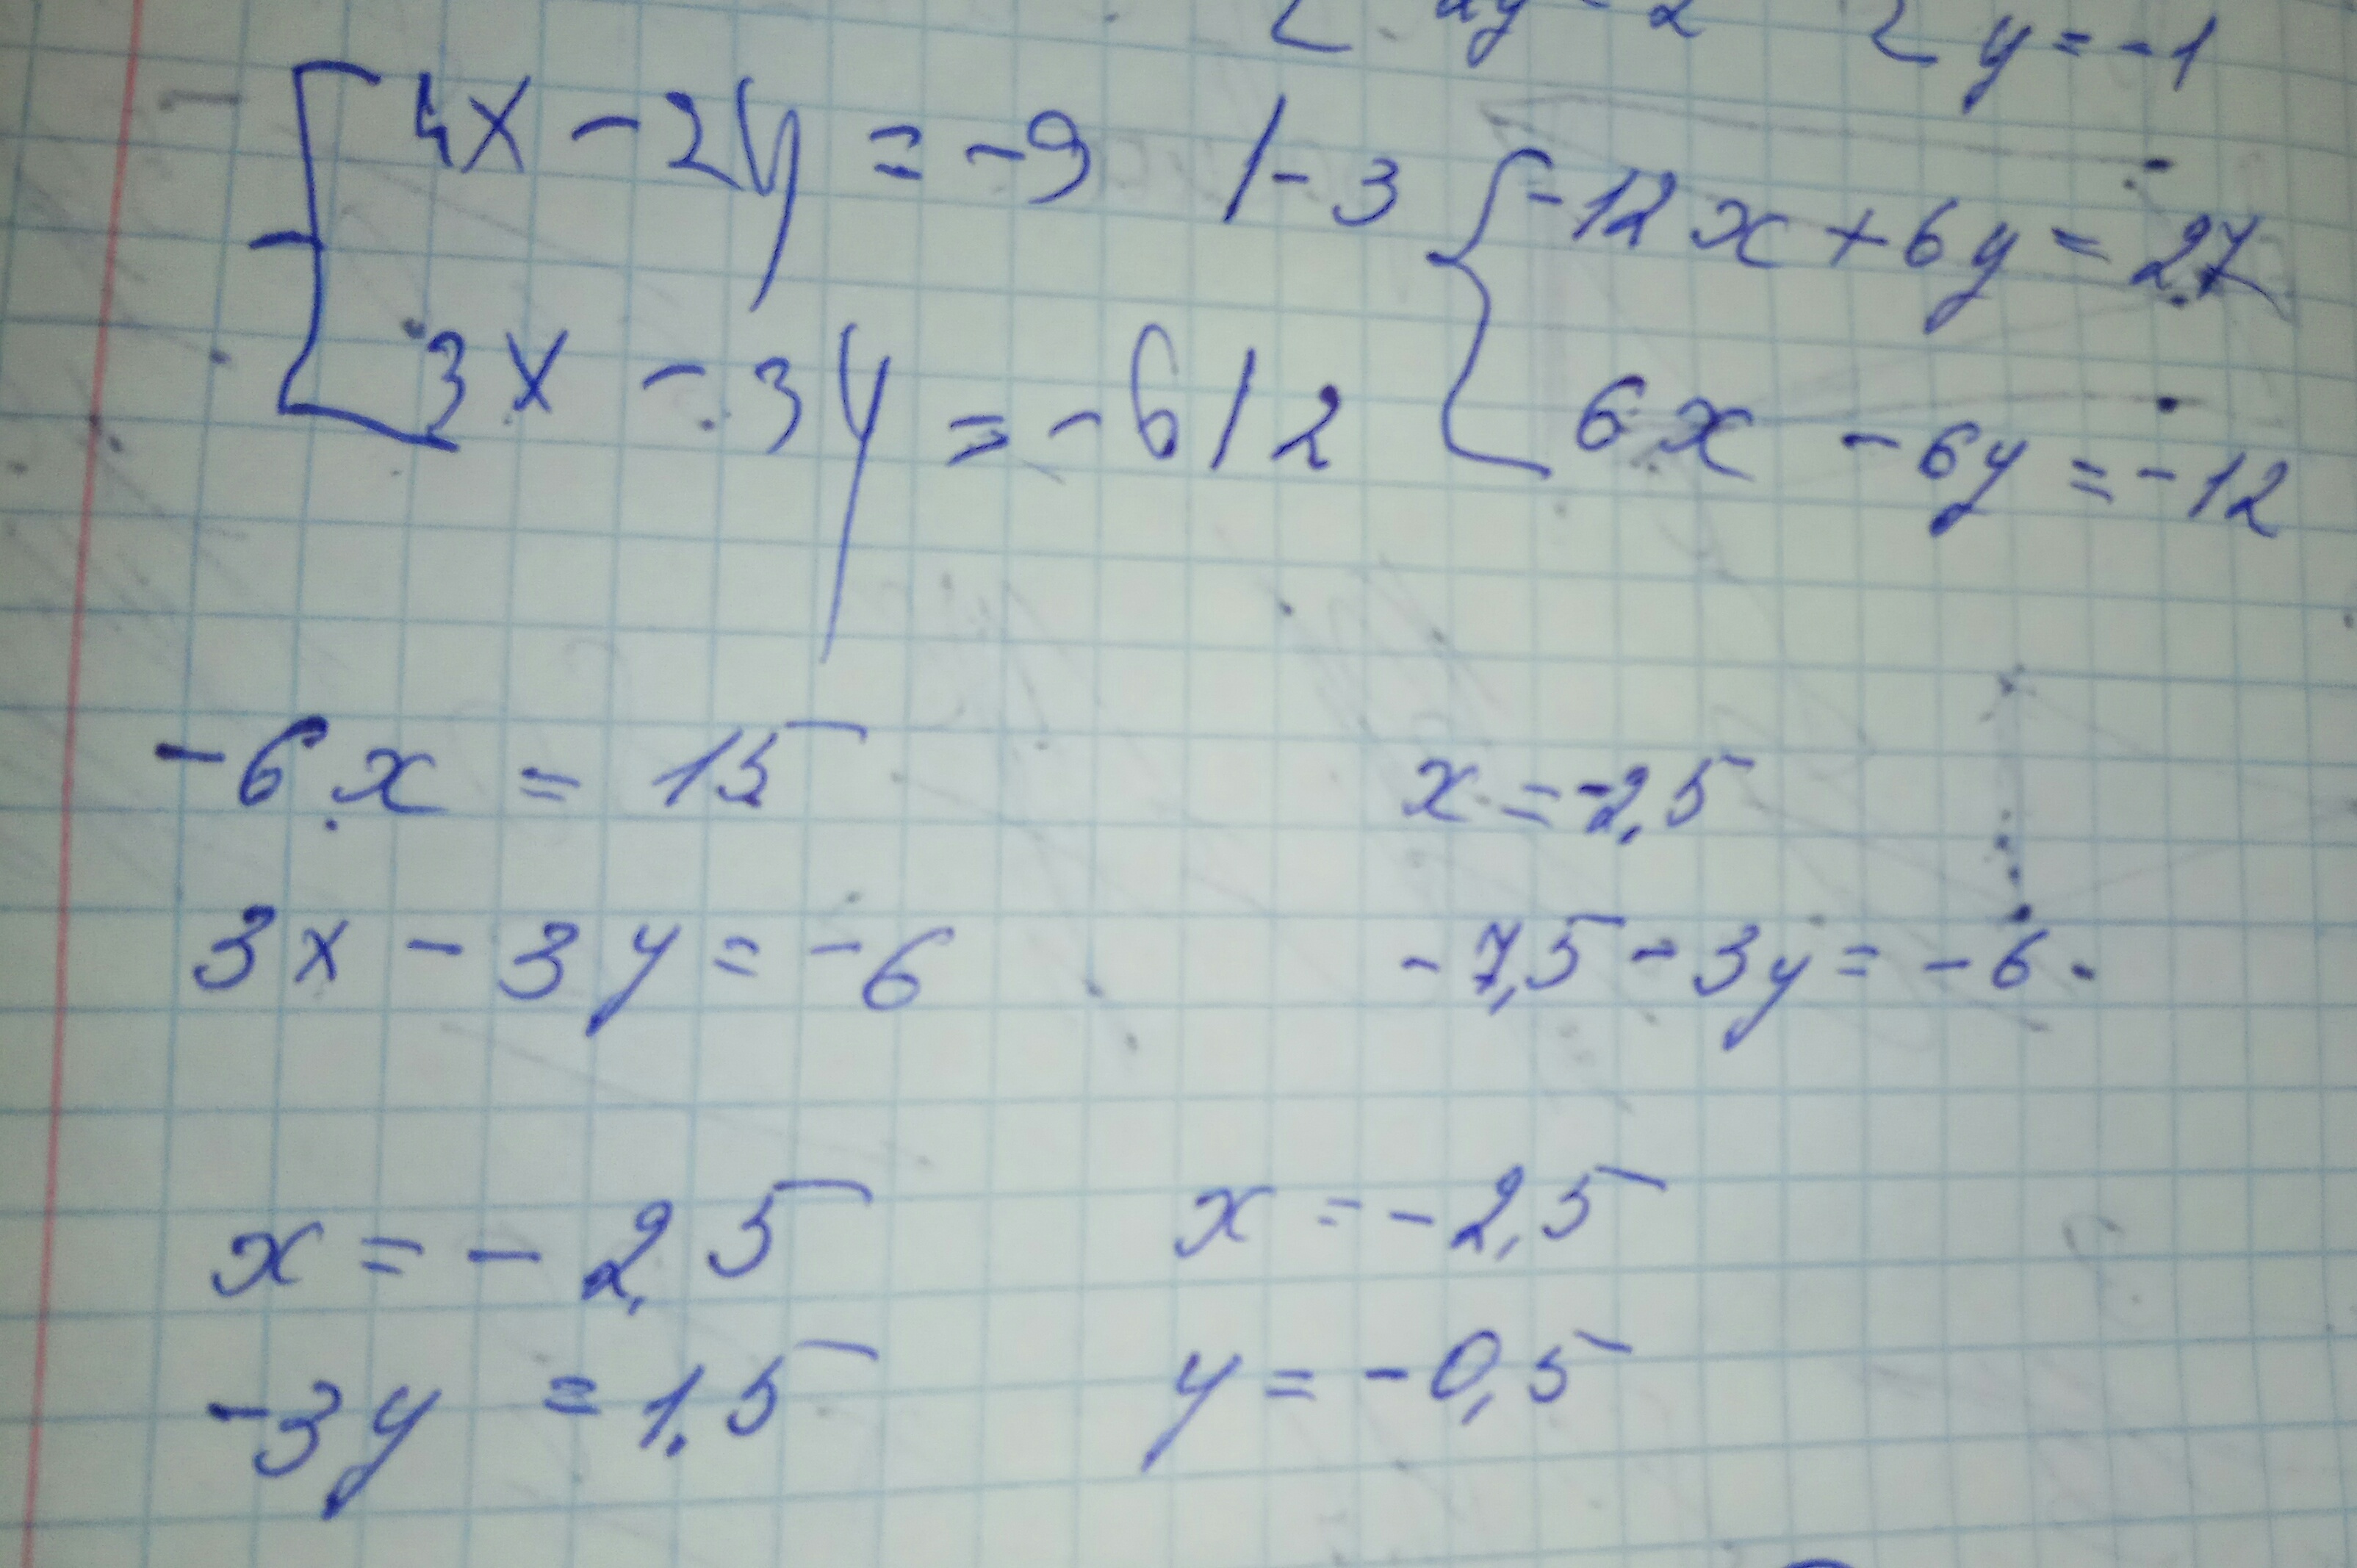 y = -1
4x - 2y = -9 /-3 { -12x + 6y = 27
3x - 3y = -6 / 2 6x - 6y = -12
-6x = 15 x = -2,5
3x - 3y = -6 -7,5 - 3y = -6
x = -2,5 x = -2,5
-3y = 1,5 y = -0,5